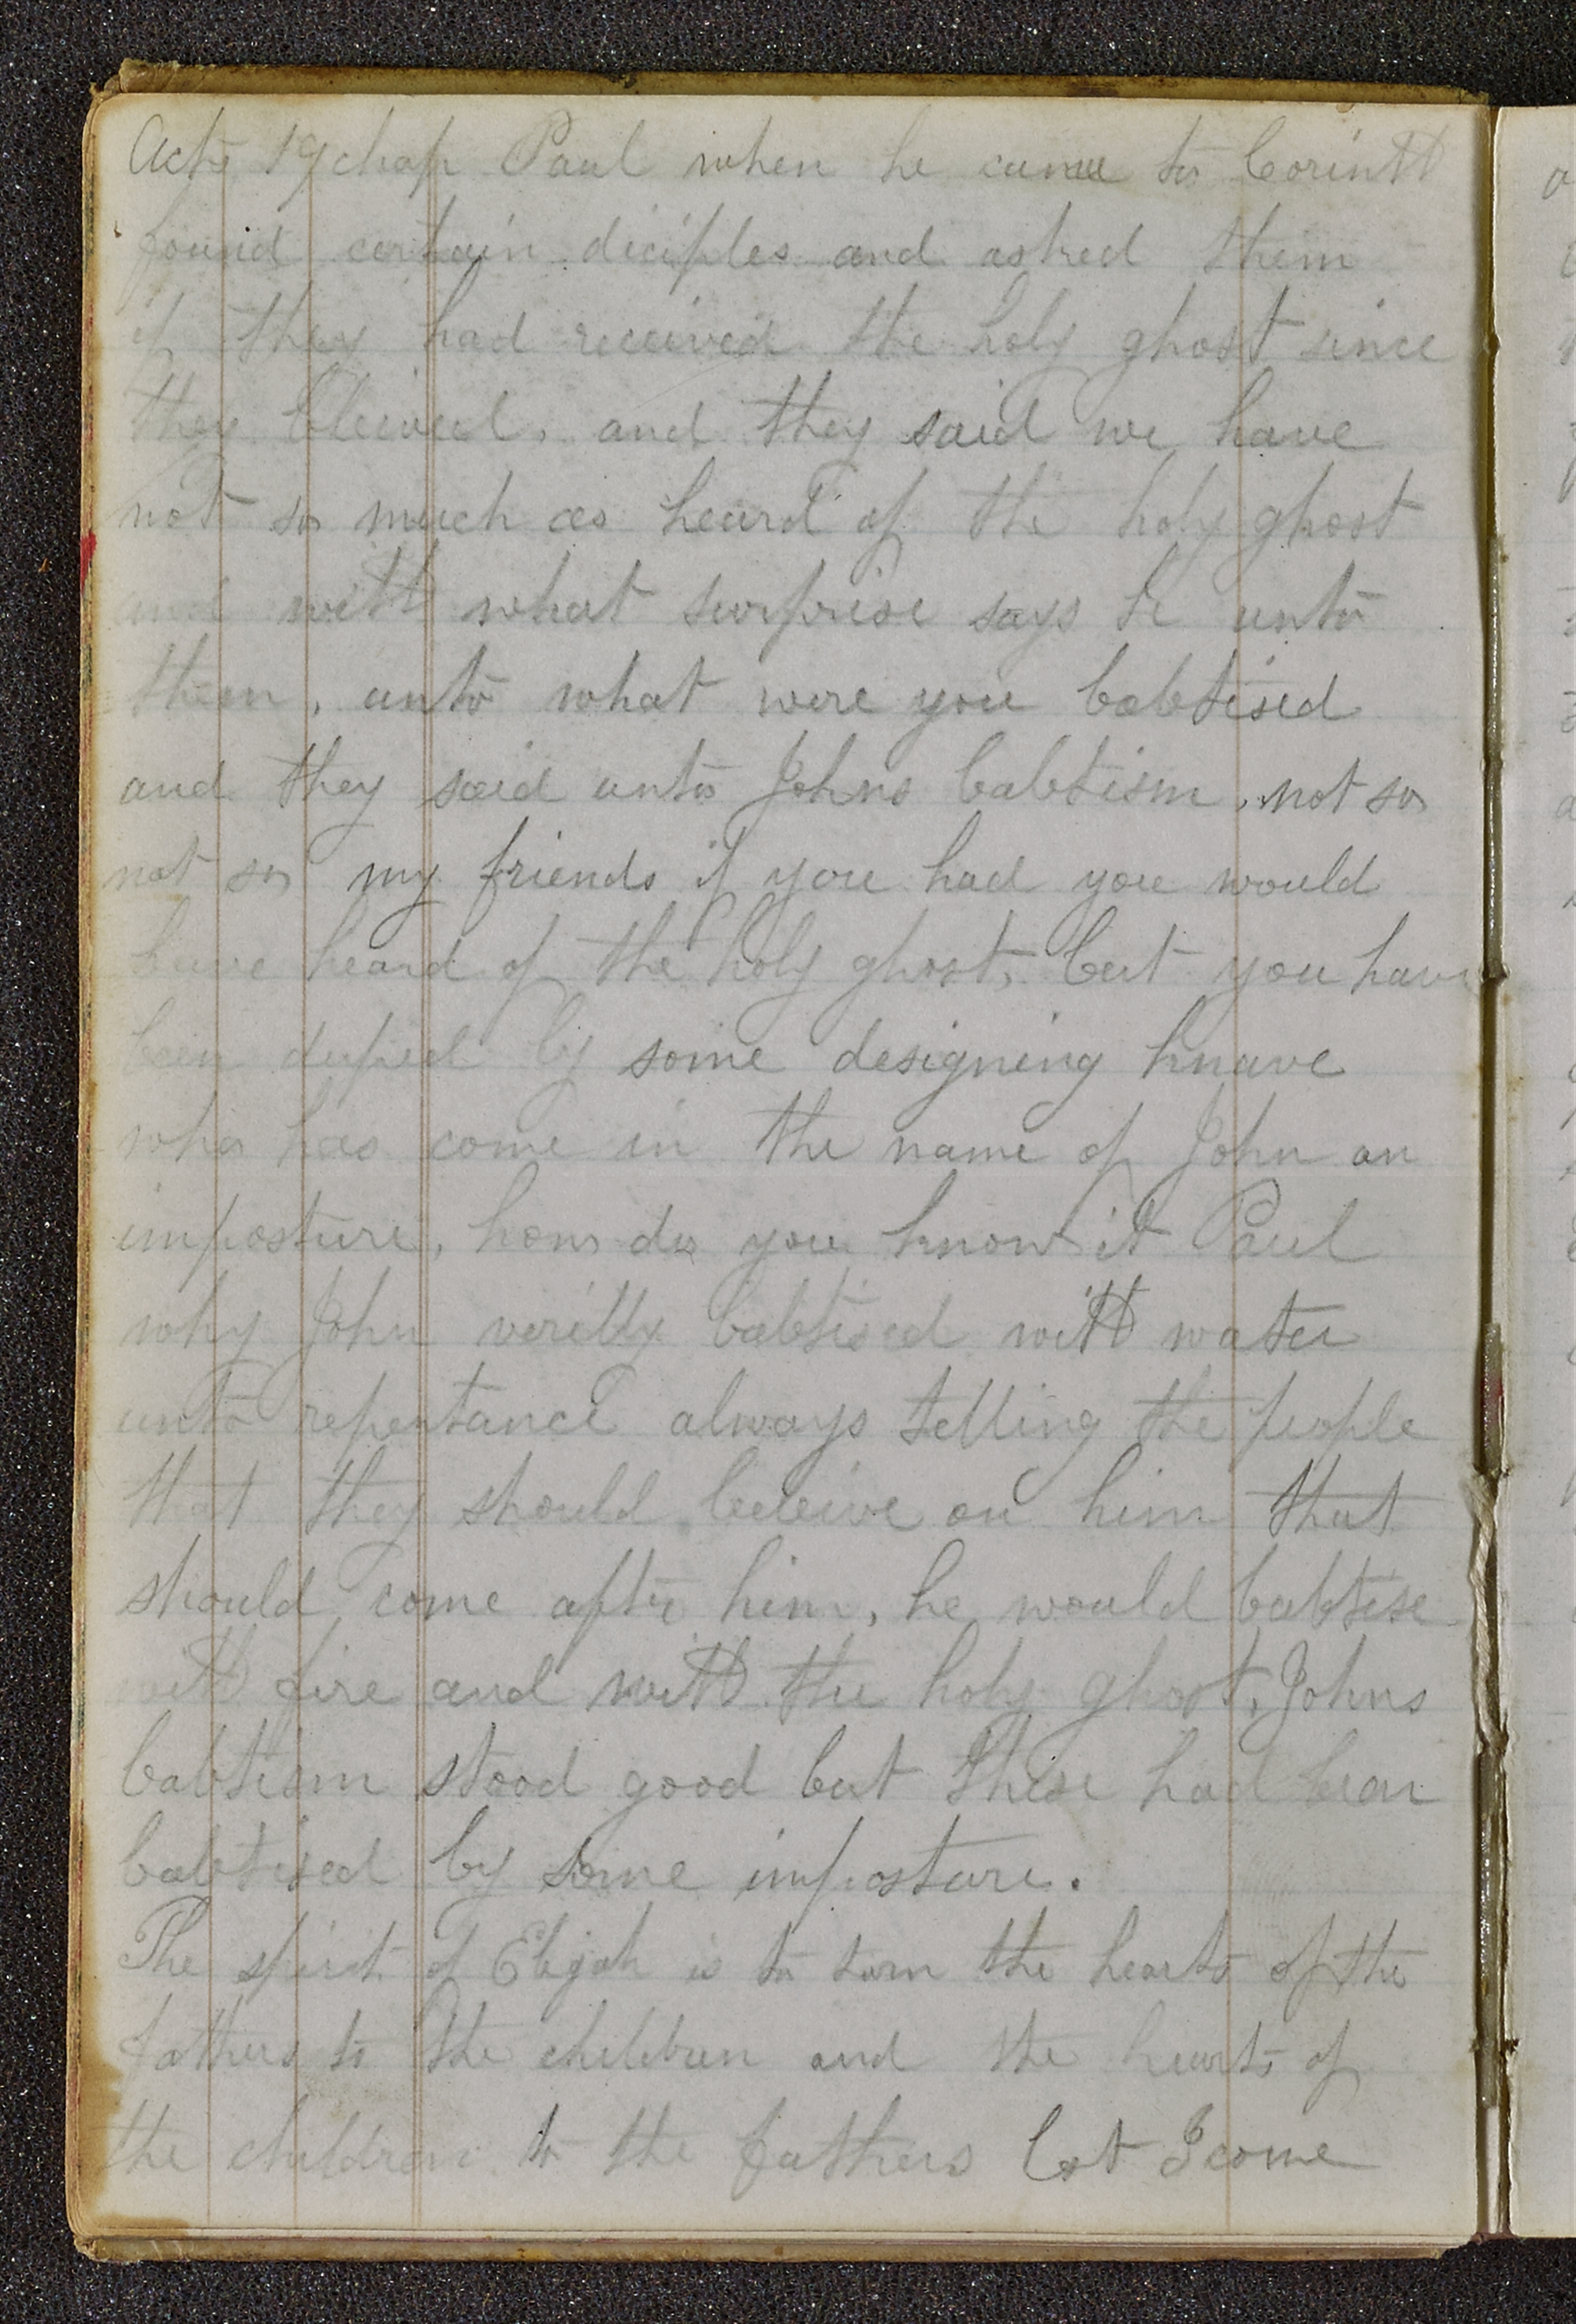 Acts 19 chap Paul when he came to Corinth
found certain diciples and asked them
if they had received the holy ghost since
they bleived, and they said we have
not so much as heard of the holy ghost
and with what surprise says he unto
them, unto what were you babtised
and they said unto Johns babtism, not so
not so my friends if you had you would
have heard of the holy ghost, but you have
been duped by some designing knave
who has come in the name of John an
imposture, how do you know it Paul
why John verilly babtised with water
unto repentance always telling the people
that they should beleive on him that
should come after him, he would babtise
with fire and with the holy ghost, Johns
babtism stood good but these had bean
babtised by some imposture.
The spirit of Elijah is to turn the hearts of the
fathers to the children and the hearts of
the children to the fathers lest I come